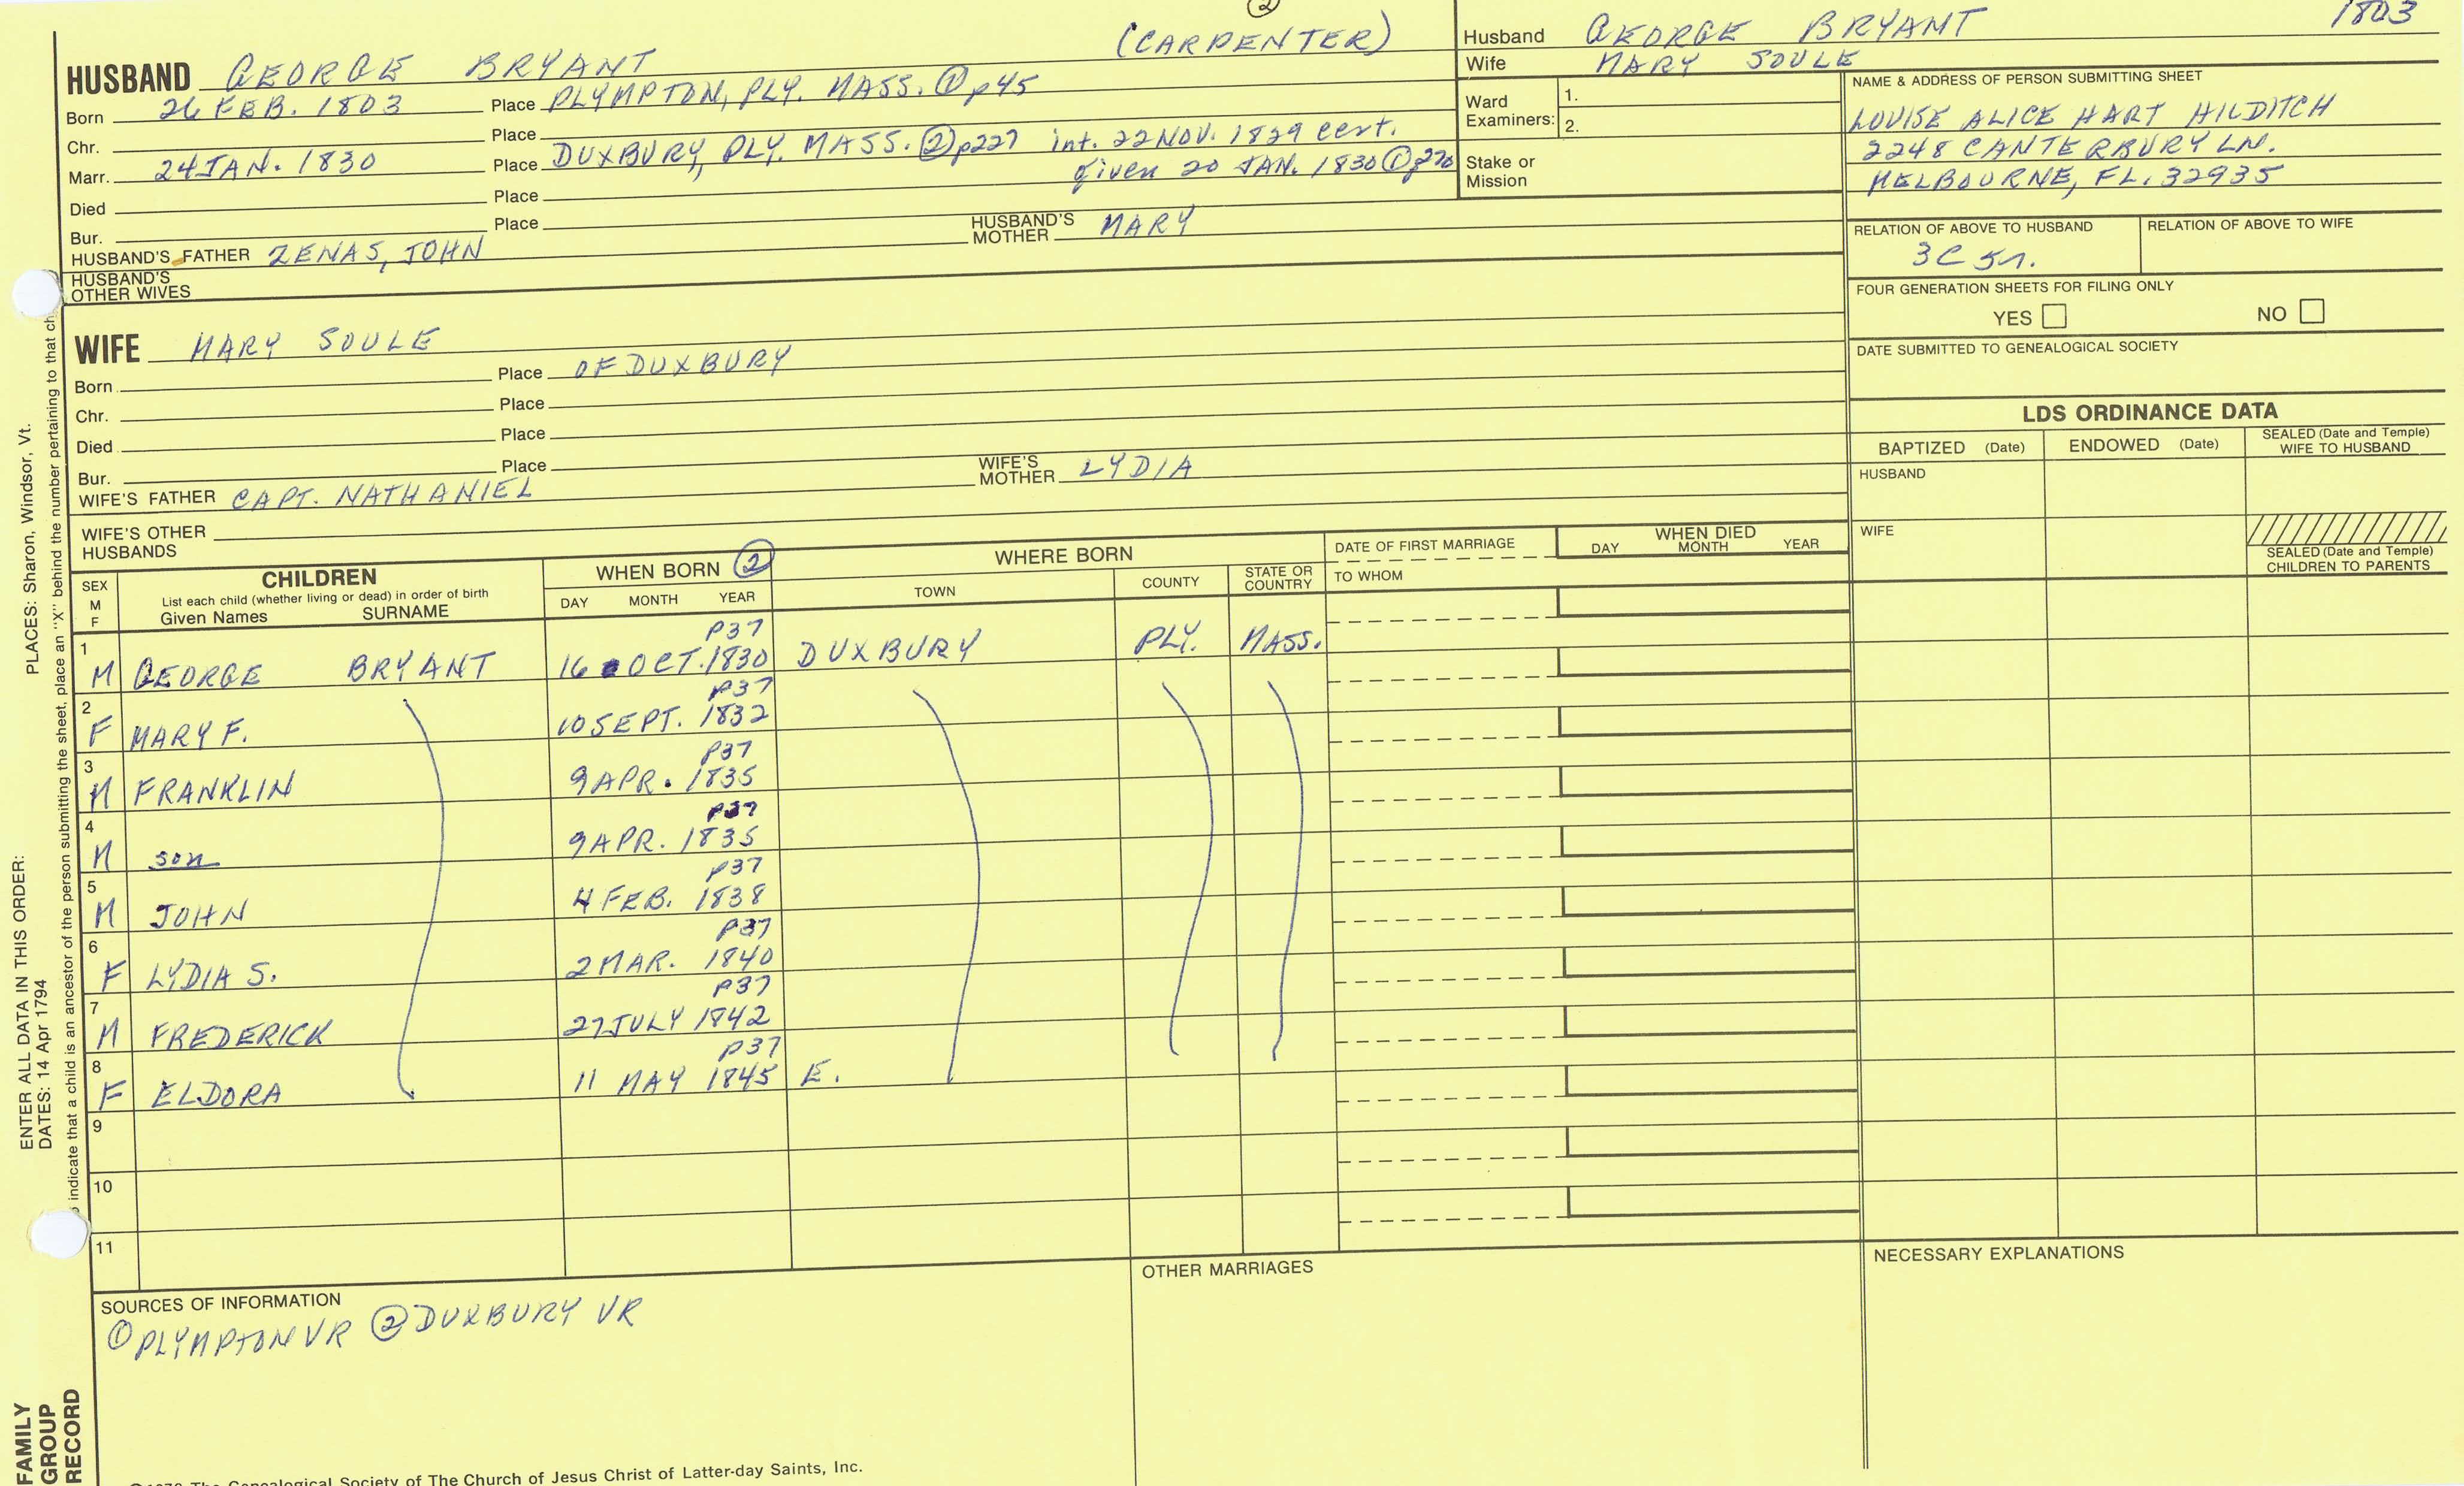 ②
(CARPENTER)
HUSBAND GEORGE BRYANT
Born 26 FEB. 1803 Place PLYMPTON, PLY. MASS. ① p45
Chr. Place
Marr. 24 JAN. 1830 Place DUXBURY, PLY. MASS. ② p227 int. 22 NOV. 1829 cert.
given 20 JAN. 1830 ①
Died Place
Bur. Place
HUSBAND'S FATHER ZENAS, JOHN HUSBAND'S MOTHER MARY
HUSBAND'S
OTHER WIVES
1803
Husband GEORGE BRYANT
Wife MARY SOULE
Ward
Examiners: 1.
2.
Stake or
Mission
NAME & ADDRESS OF PERSON SUBMITTING SHEET
LOUISE ALICE HART HILDITCH
2248 CANTERBURY LN.
MELBOURNE, FL. 32935
RELATION OF ABOVE TO HUSBAND RELATION OF ABOVE TO WIFE
3C 5r.
FOUR GENERATION SHEETS FOR FILING ONLY
YES NO
DATE SUBMITTED TO GENEALOGICAL SOCIETY
WIFE MARY SOULE
Born Place OF DUXBURY
Chr. Place
Died Place
Bur. Place
WIFE'S FATHER CAPT. NATHANIEL WIFE'S MOTHER LYDIA
WIFE'S OTHER
HUSBANDS
LDS ORDINANCE DATA
BAPTIZED (Date) ENDOWED (Date) SEALED (Date and Temple)
WIFE TO HUSBAND
HUSBAND
WIFE
SEALED (Date and Temple)
CHILDREN TO PARENTS
SEX
M
F
CHILDREN
List each child (whether living or dead) in order of birth
Given Names SURNAME
WHEN BORN ②
DAY MONTH YEAR
WHERE BORN
TOWN COUNTY STATE OR
COUNTRY
DATE OF FIRST MARRIAGE
TO WHOM
WHEN DIED
DAY MONTH YEAR
1 P37
M GEORGE BRYANT 16 OCT. 1830 DUXBURY PLY. MASS.
2 P37
F MARY F. 10 SEPT. 1832
3 P37
M FRANKLIN 9 APR. 1835
4 P37
M son 9 APR. 1835
5 P37
M JOHN 4 FEB. 1838
6 P37
F LYDIA S. 2 MAR. 1840
7 P37
M FREDERICK 27 JULY 1842
8 P37
F ELDORA 11 MAY 1845 E.
9
10
11
SOURCES OF INFORMATION
① PLYMPTON VR ② DUXBURY VR
OTHER MARRIAGES
NECESSARY EXPLANATIONS
The Genealogical Society of The Church of Jesus Christ of Latter-day Saints, Inc.
PLACES: Sharon, Windsor, Vt.
indicate that a child is an ancestor of the person submitting the sheet, place an "X" behind the number pertaining to that ch
ENTER ALL DATA IN THIS ORDER:
DATES: 14 Apr 1794
FAMILY
GROUP
RECORD